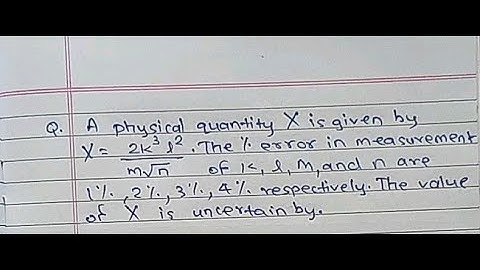 Q. A physical quantity X is given by
X = 2k³ l² / m√n . The % error in measurement
of k, l, m, and n are
1%, 2%, 3%, 4% respectively. The value
of X is uncertain by.